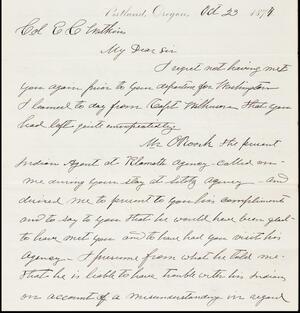 Portland, Oregon, Oct 23 1874
Col E. C. Watkins
My Dear Sir
I regret not having met
you again prior to your departure for Washington
I learned to day from Capt Wilkinson that you
had left quite unexpectedly.
Mr O'Roork the present
Indian Agent at Klamath Agency called on
me during your stay at Siletz Agency and
desired me to present to you his compliments
and to say to you that he would have been glad
to have met you and to have had you visit his
Agency. I presume from what he told me
that he is liable to have trouble with his Indians
on account of a misunderstanding in regard